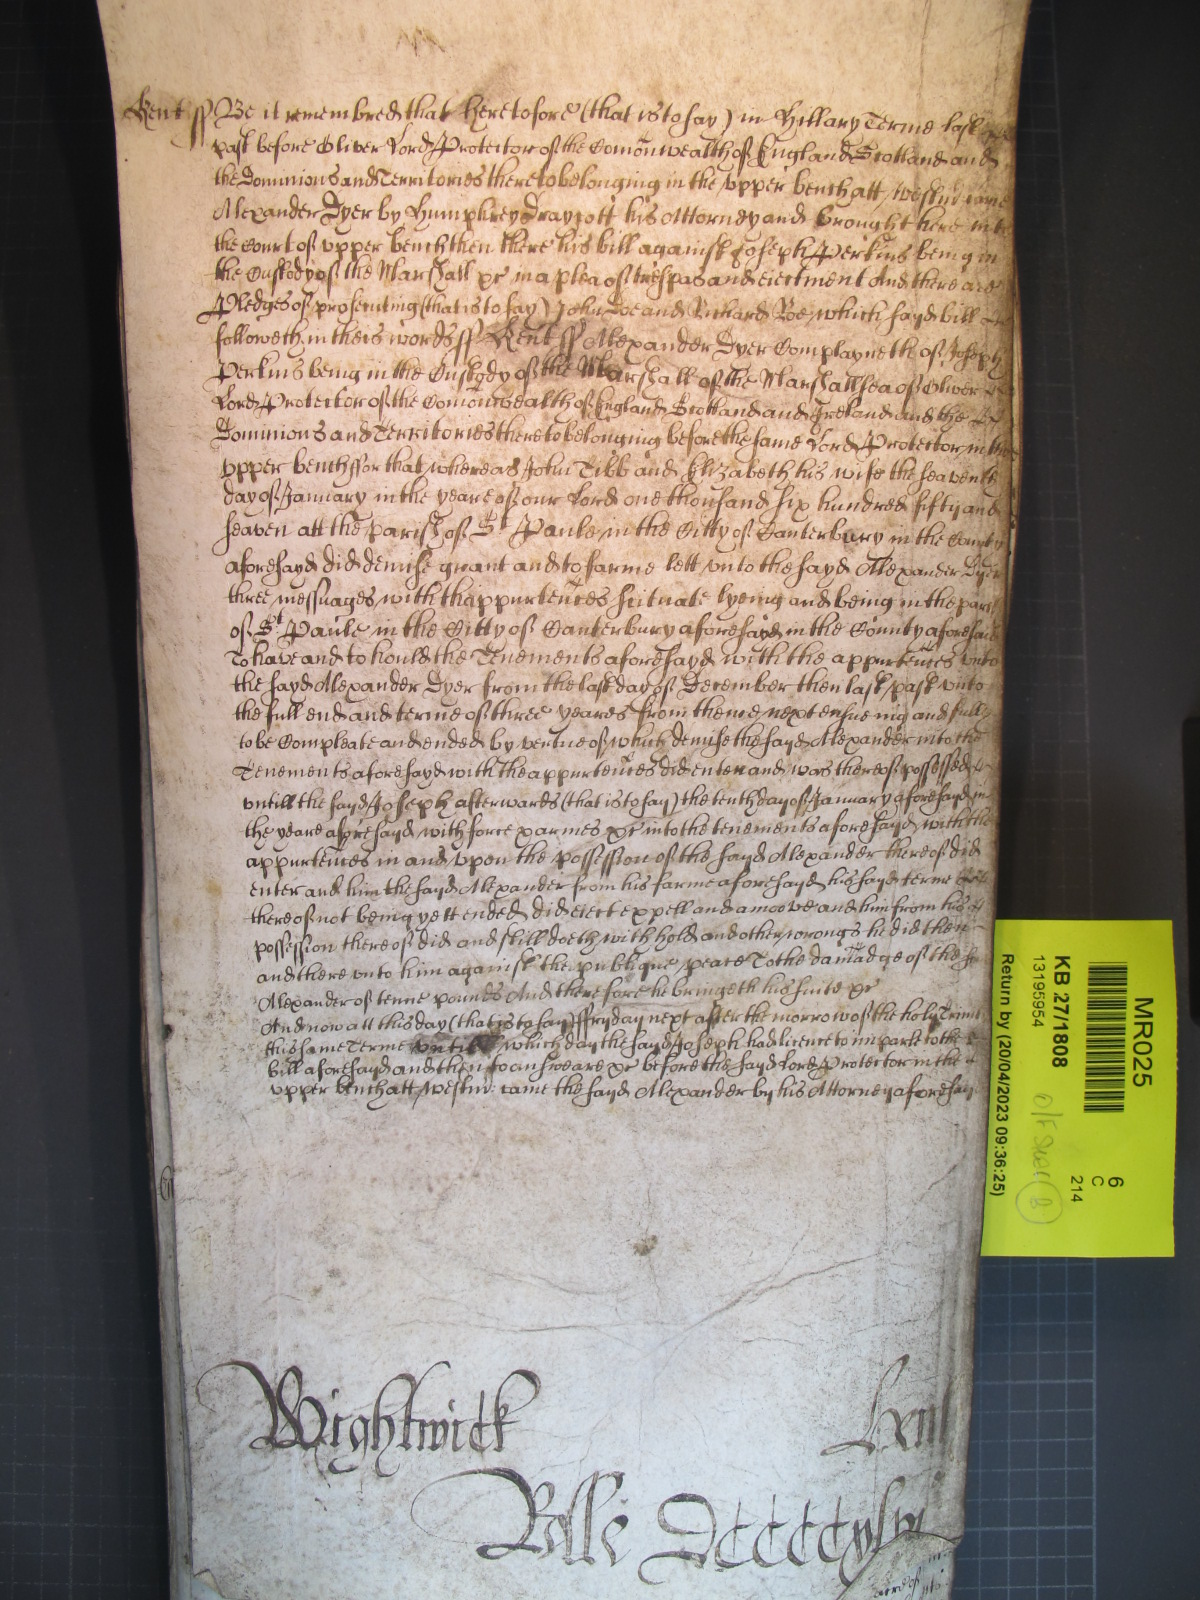 Kent ss Be it remembred that heretofore (that is to say) in Hillary Terme last
past before Oliver Lord Protector of the Comonwealth of England Scotland and
the Dominions and Territories thereto belonging in the upper bench att Westmr came
Alexander Dyer by Humphrey Draycott his Attorney and brought here into
the Court of upper bench then there his bill against Joseph Perkins being in
the Custody of the Marshall &c in a plea of trespas and eiectment And there are
Pledges of prosecuting (that is to say) John Doe and Richard Roe which sayd bill
followeth in theis words ss Kent ss Alexander Dyer Complayneth of Joseph
Perkins being in the Custody of the Marshall of the Marshallsea of Oliver
Lord Protector of the Comonwealth of England Scotland and Ireland and the
Dominions and Territories thereto belonging before the same Lord Protector in the
upper bench ffor that whereas John Tibb and Elizabeth his wife the seaventh
day of January in the yeare of our Lord one thousand six hundred fifty and
seaven att the parish of St Paule in the Citty of Canterbury in the County
aforesayd did demise grant and to farme lett unto the sayd Alexander Dyer
three messuages with thappurtences scituate lyeing and being in the parish
of St Paule in the Citty of Canterbury aforesayd in the County aforesaid
To have and to hould the Tenements aforesayd with the appurtences unto
the sayd Alexander Dyer from the last day of December then last past unto
the full end and terme of three yeares from thence next ensueing and fully
to be Compleate and ended by vertue of which demise the sayd Alexander into the
Tenements aforesayd with the appurtences did enter and was thereof possessed
untill the sayd Joseph afterwards (that is to say) the tenth day of January aforesayd in
the yeare aforesayd with force & armes &c into the tenements aforesayd with the
appurtences in and upon the possession of the sayd Alexander thereof did
enter and him the sayd Alexander from his farme aforesayd his sayd terme
thereof not being yett ended did eiect expell and amoove and him from his
possession thereof did and still doeth with hold and other wrongs he did then
and there unto him against the publique peace To the damadge of the
Alexander of tenne pounds And therefore he bringeth his suite &c
And now att this day (that is to say) ffryday next after the morrow of the holy Trinity
this same Terme untill which day the sayd Joseph had licence to imparle to the
bill aforesayd and then to answeare &c before the sayd Lord Protector in the
upper bench att Westmr came the sayd Alexander by his Attorney aforesayd
Wightwick Kent
Rolle
MR025
KB 27/1808
13195954
6
C
214
Return by (20/04/2023 09:36:25)